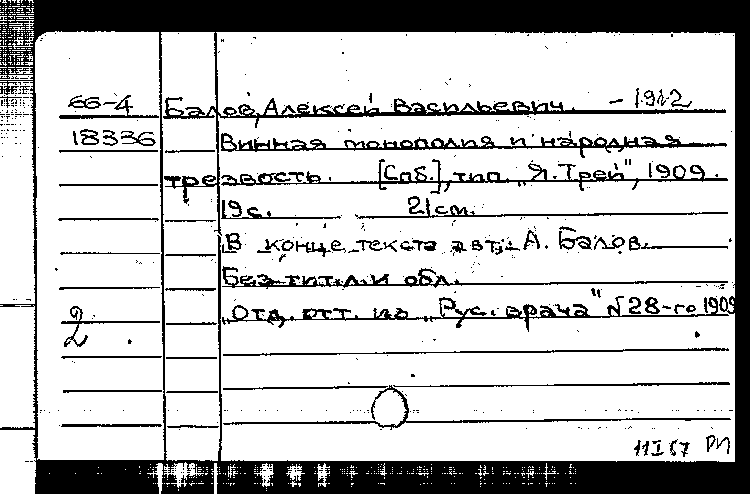 66-4 Балов, Алексей Васильевич. - 1912
18336 Винная монополия и народная
трезвость. [Спб.], тип. "Я. Трей", 1909.
19 с. 21 см.
В конце текста авт.: А. Балов.
Без тит. л. и обл.
"Отд. отт. из "Рус. врача" № 28-го 1909
2
11 I 67